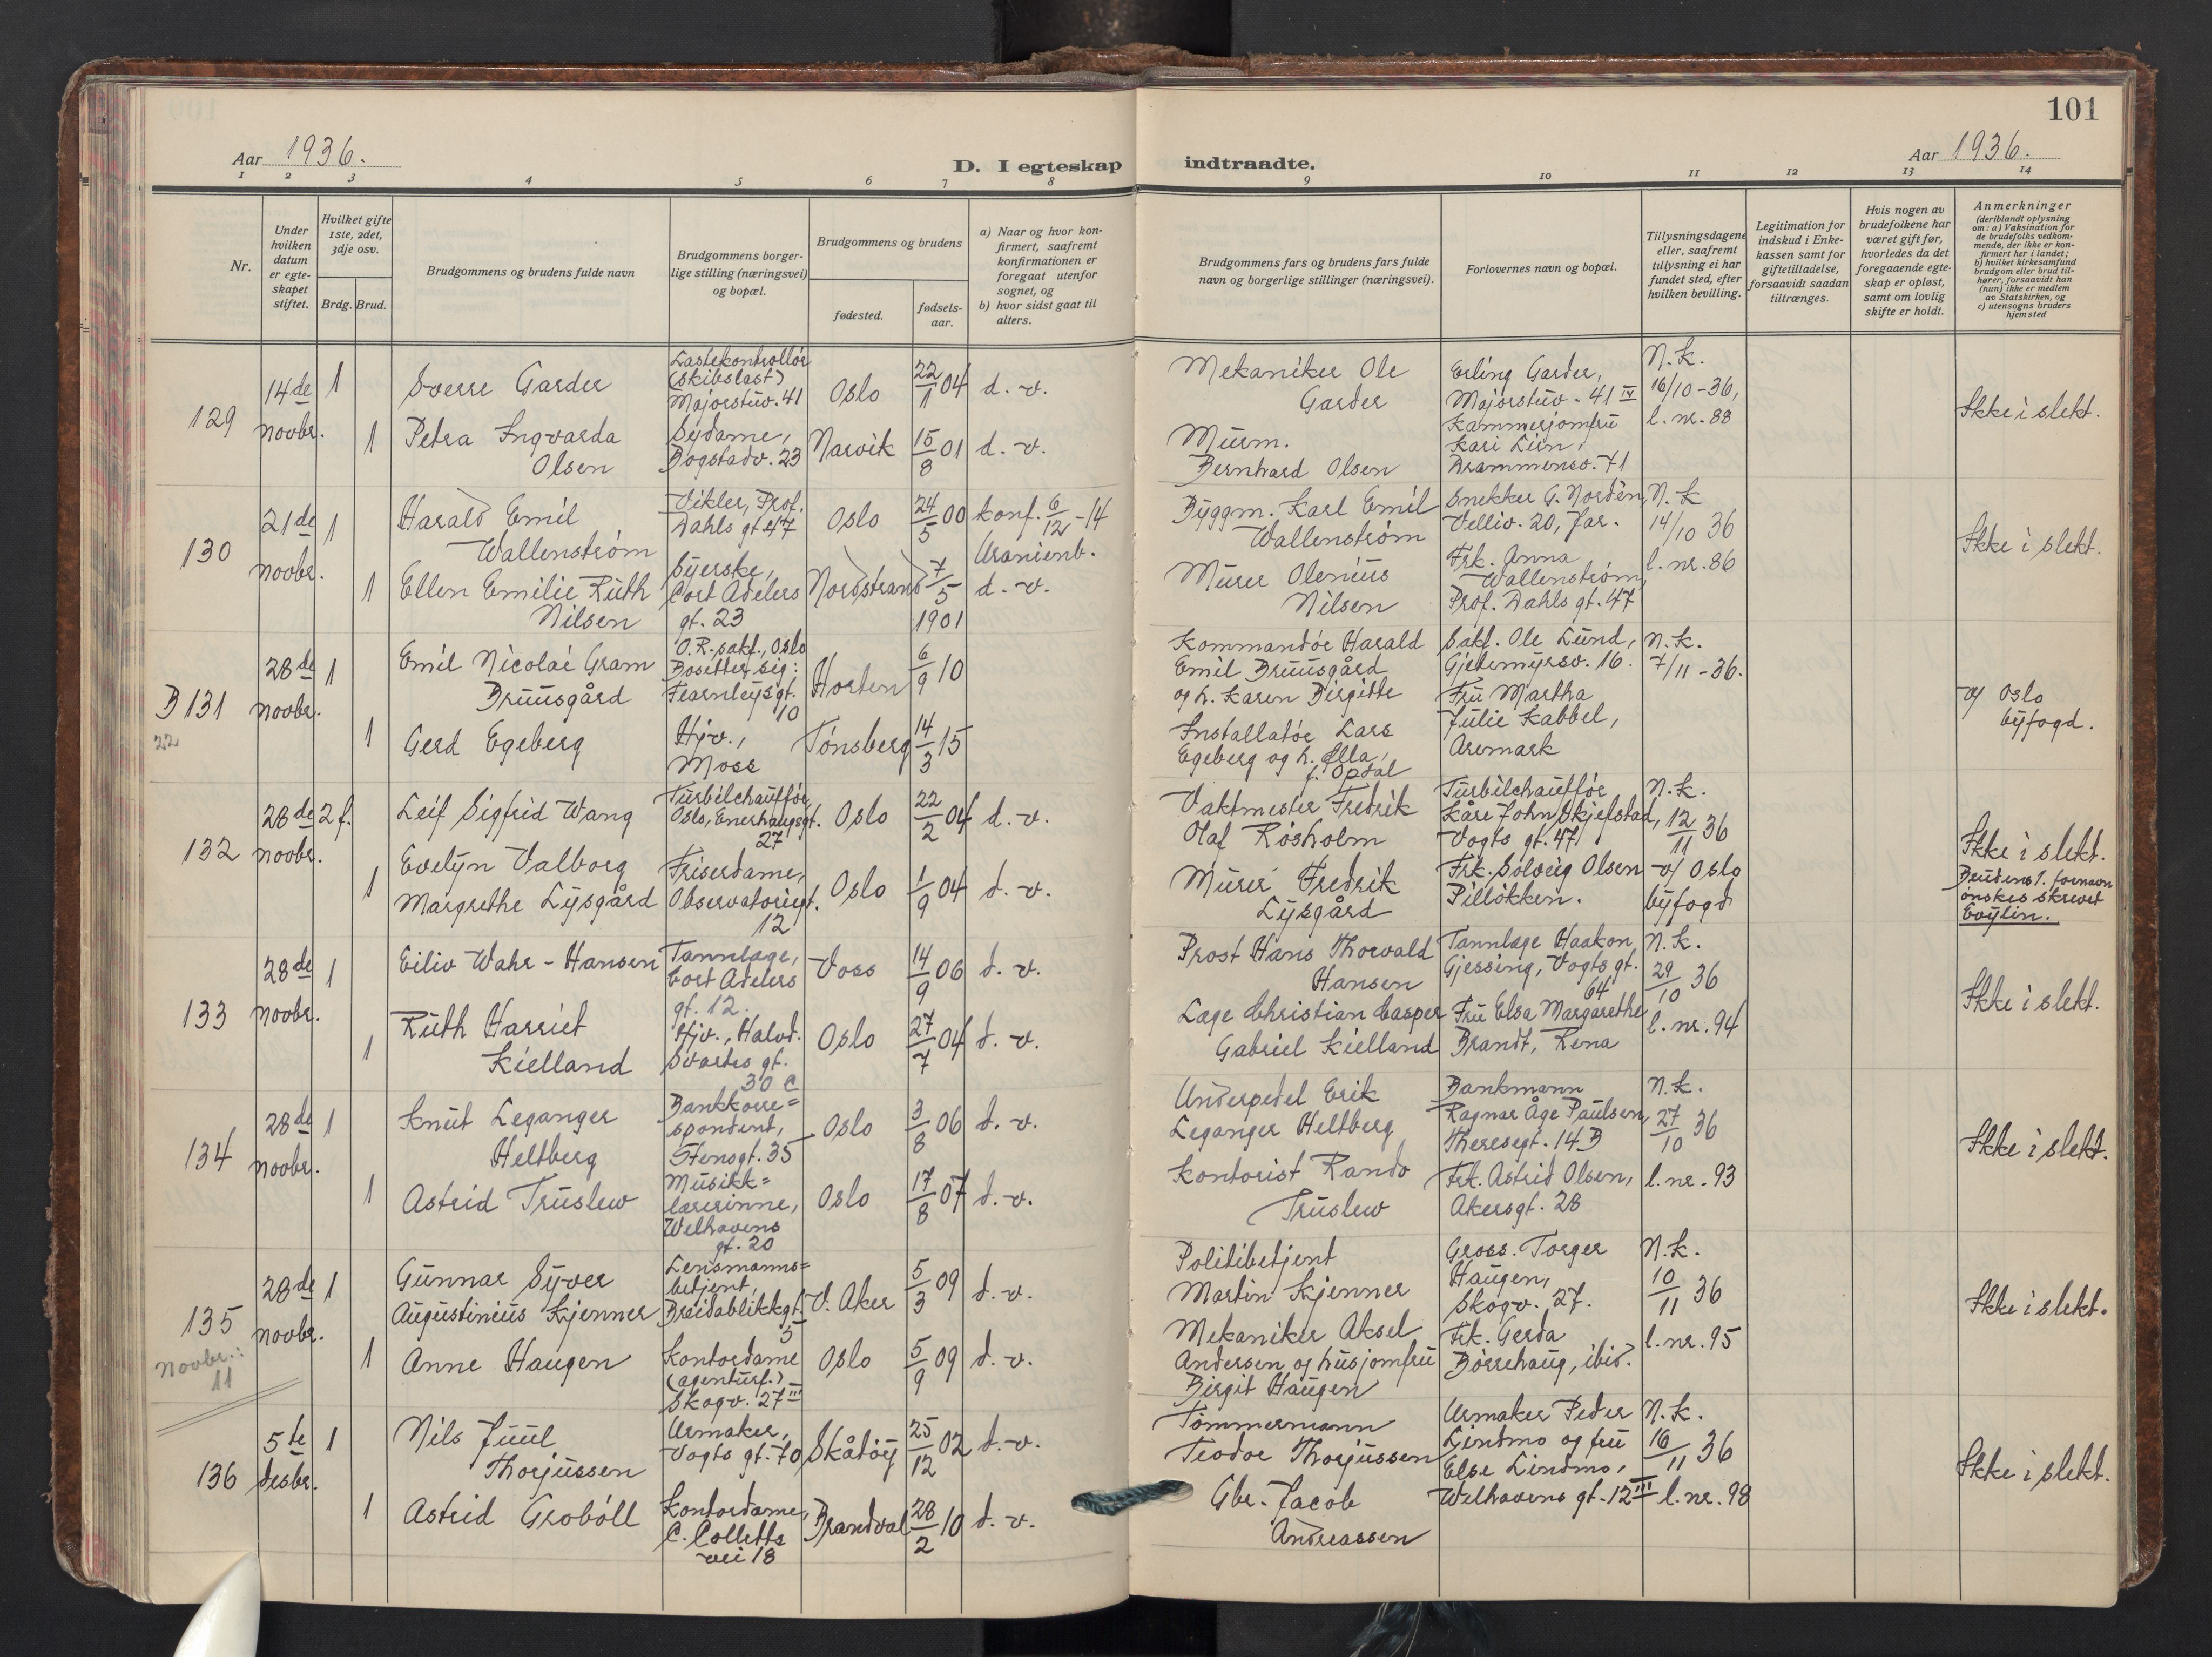 101
Aar 1936.
D. I egteskap indtraadte.
Aar 1936.
1 2 3 4 5 6 7 8 9 10 11 12 13 14
Nr.
Under hvilken datum er egteskapet stiftet.
Hvilket gifte 1ste, 2det, 3dje osv.
Brdg. Brud.
Brudgommens og brudens fulde navn
Brudgommens borgerlige stilling (næringsvei) og bopæl.
Brudgommens og brudens
fødested.
fødselsaar.
a) Naar og hvor konfirmert, saafremt konfirmationen er foregaat utenfor sognet, og
b) hvor sidst gaat til alters.
Brudgommens fars og brudens fars fulde navn og borgerlige stillinger (næringsvei).
Forlovernes navn og bopæl.
Tillysningsdagene eller, saafremt tillysning ei har fundet sted, efter hvilken bevilling.
Legitimation for indskud i Enkekassen samt for giftetilladelse, forsaavidt saadan tiltrænges.
Hvis nogen av brudefolkene har været gift før, hvorledes da det foregaaende egteskap er opløst, samt om lovlig skifte er holdt.
Anmerkninger
(deriblandt oplysning om: a) Vaksination for de brudefolks vedkommende, der ikke er konfirmert her i landet;
b) hvilket kirkesamfund brudgom eller brud tilhører, forsaavidt han (hun) ikke er medlem av Statskirken, og
c) utensogns bruders hjemsted
129
14de novbr.
1
Sverre Garder
Lastekontrollør
(skibslast)
Majorstuv. 41
Oslo
22/1 04
d. v.
Mekaniker Ole
Garder
Erling Garder,
Majorstuv. 41 IV
Kammerjomfru
Kari Lien,
Drammensv. 71
N.k.
16/10-36,
l. nr. 88
Ikke i slekt.
1
Petra Ingvarda
Olsen
Sydame,
Bogstadv. 23
Narvik
15/8 01
d. v.
Murm.
Bernhard Olsen
130
21de novbr.
1
Harald Emil
Wallenstrøm
Vikler, Prof.
Dahls gt. 47
Oslo
24/5 00
konf. 6/12-14
Uranienb.
Byggm. Karl Emil
Wallenstrøm
Snekker G. Nordén,
Velliv. 20, Jar.
Frk. Anna
Wallenstrøm,
Prof. Dahls gt. 47
N.k
14/10 36
l. nr. 86
Ikke i slekt.
1
Ellen Emilie Ruth
Nilsen
Syerske,
Cort Adelers
gt. 23
Nordstrand
7/5
1901
d. v.
Murer Olenius
Nilsen
B 131
22
28de novbr.
1
Emil Nicolai Gram
Bruusgård
O.R.sakf., Oslo
Bosetter sig:
Fearnleys gt.
10
Horten
6/9 10
Kommandør Harald
Emil Bruusgård
og h. Karen Birgitte
Sakf. Ole Lund,
Gjetemyrsv. 16.
Fru Martha
Julie Kabbel,
Aremark
N.k.
7/11-36.
v/ Oslo
byfogd.
1
Gerd Egeberg
Hjv.,
Moss
Tønsberg
14/3 15
Installatør Lars
Egeberg og h. Ella,
f. Opdal
132
28de novbr.
2 f.
Leif Sigfrid Wang
Turbilchauffør,
Oslo, Enerhaugsgt.
27
Oslo
22/2 04
d. v.
Vaktmester Fredrik
Olaf Rosholm
Turbilchauffør
Kåre John Skjefstad,
Vogts gt. 47.
Frk. Solveig Olsen
Pilløkken.
N.k.
12/11 36
v/ Oslo
byfogd
Ikke i slekt.
Brudens 1. fornavn
ønskes skrevet
Evylin.
1
Evelyn Valborg
Margrethe Lysgård
Friserdame,
Observatoriegt.
12
Oslo
1/9 04
d. v.
Murer Fredrik
Lysgård
133
28de novbr.
1
Eiliv Wahr-Hansen
Tannlæge,
Cort Adelers
gt. 12.
Voss
14/9 06
d. v.
Prost Hans Thorvald
Hansen
Tannlæge Haakon
Gjessing, Vogts gt.
64
Fru Elsa Margarethe
Brandt, Rena
N.k.
29/10 36
l. nr. 94
Ikke i slekt.
1
Ruth Harriet
Kielland
Hjv., Halvd.
Svartes gt.
30 C
Oslo
27/7 04
d. v.
Læge Christian Casper
Gabriel Kielland
134
28de novbr.
1
Knut Leganger
Heltberg
Bankkorre=
spondent,
Stensgt. 35
Oslo
3/8 06
d. v.
Underpedel Erik
Leganger Heltberg
Bankmann
Ragnar Åge Paulsen,
Theresegt. 14 B
Frk. Astrid Olsen,
Akersgt. 28
N.k.
27/10 36
l. nr. 93
Ikke i slekt.
1
Astrid Truslew
Musikk=
lærerinne,
Welhavens
gt. 20
Oslo
17/8 07
d. v.
Kontorist Rando
Truslew
135
Novbr.:
11
28de novbr.
1
Gunnar Syver
Augustinius Kjenner
Lensmanns=
betjent,
Breidablikkgt.
5
V. Aker
5/3 09
d. v.
Politibetjent
Martin Kjenner
Gross. Torger
Haugen,
Skogv. 27.
Frk. Gerda
Børrehaug, ibid.
N.k.
10/11 36
l. nr. 95
Ikke i slekt.
1
Anne Haugen
Kontordame
(agenturf.)
Skogv. 27 III
Oslo
5/9 09
d. v.
Mekaniker Aksel
Andersen og husjomfru
Birgit Haugen
136
5te desbr.
1
Nils Juul
Thorjussen
Urmaker,
Vogts gt. 70
Skåtøy
25/12 02
d. v.
Tømmermann
Teodor Thorjussen
Urmaker Peder
Lindmo og fru
Else Lindmo,
Welhavens gt. 12 III
N.k.
16/11 36
l. nr. 98
Ikke i slekt.
1
Astrid Grobøll
Kontordame,
C. Colletts
vei 18
Brandval
28/2 10
d. v.
Gbr. Jacob
Andreassen